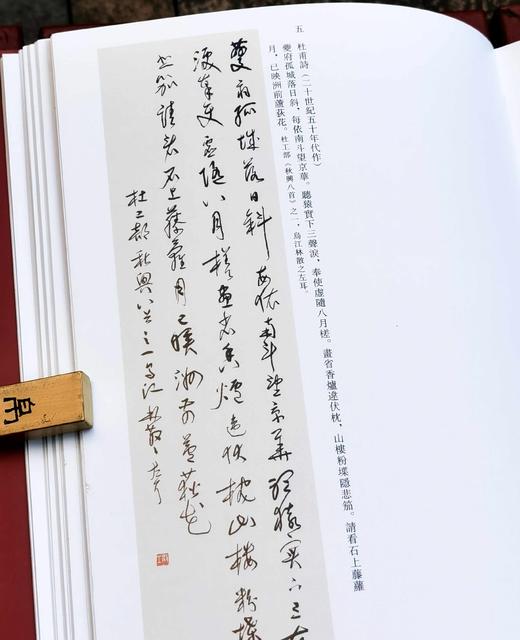 五 杜甫詩（二十世紀五十年代作）
夔府孤城落日斜，每依南斗望京華。聽猿實下三聲淚，奉使虛隨八月槎。畫省香爐違伏枕，山樓粉堞隱悲笳。請看石上藤蘿
月，已映洲前蘆荻花。杜工部《秋興八首》之一，烏江林散之左耳。
夔府孤城落日斜每依南斗望京華聽猿實下三
淚奉使虛隨八月槎畫省香爐違伏枕山樓粉堞
悲笳請看石上藤蘿月已映洲前蘆荻花
杜工部秋興八首之一烏江林散之左耳
帛